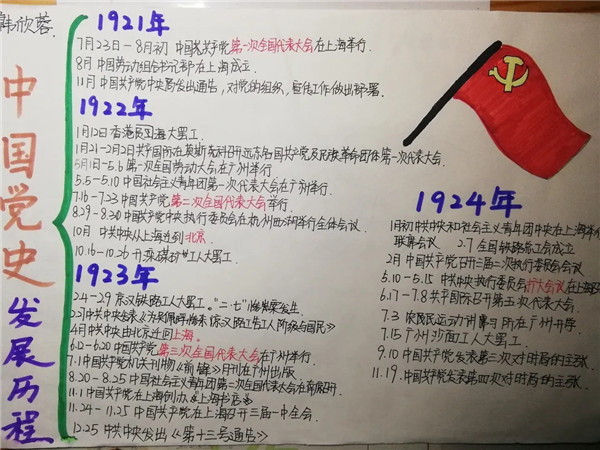 韩欣蓉
中国党史
发展历程
1921年
7月23日-8月初 中国共产党第一次全国代表大会在上海举行.
8月 中国劳动组合书记部在上海成立.
11月 中国共产党中央局发出通告，对党的组织，宣传工作做出部署.
1922年
1月12日 香港海员大罢工.
1月21-2月2日共产国际在莫斯科召开远东各国共产党及民族革命团体第一次代表大会.
5月1日-5.6 第一次全国劳动大会在广州举行.
5.5-5.10 中国社会主义青年团第一次代表大会在广州举行.
7.16-7.23 中国共产党第二次全国代表大会举行.
8.29-8.30 中国共产党中央执行委员会在杭州西湖举行全体会议.
10月 中共中央从上海迁到北京.
10.16-10.26 开滦煤矿工人大罢工.
1923年
2.4-2.9 京汉铁路工人大罢工."二·七"惨案发生.
4月 中共中央由北京迁回上海.
6.12-6.20 中国共产党第三次全国代表大会在广州举行.
7.1 中国共产党机关刊物《前锋》月刊在广州出版
8.20-8.25 中国社会主义青年团第二次全国代表大会在南京召开.
11.1 中国共产党在上海创办《上海书店》
11.24-11.25 中国共产党在上海召开三届一中全会.
12.25 中共中央发出《第十三号通告》
1924年
1月初 中共中央和社会主义青年团中央在上海举行
联席会议 2.7 全国铁路总工会成立
2月 中国共产党召开三届二次执行委员会会议
5.10-5.15 中共中央执行委员会扩大会议在上海召
6.17-7.8 共产国际召开第五次代表大会.
7.3 农民运动讲习所在广州开学.
7.15 广州沙面工人大罢工.
9.10 中国共产党发表第三次对时局的主张.
11.19. 中国共产党发表第四次对时局的主张.